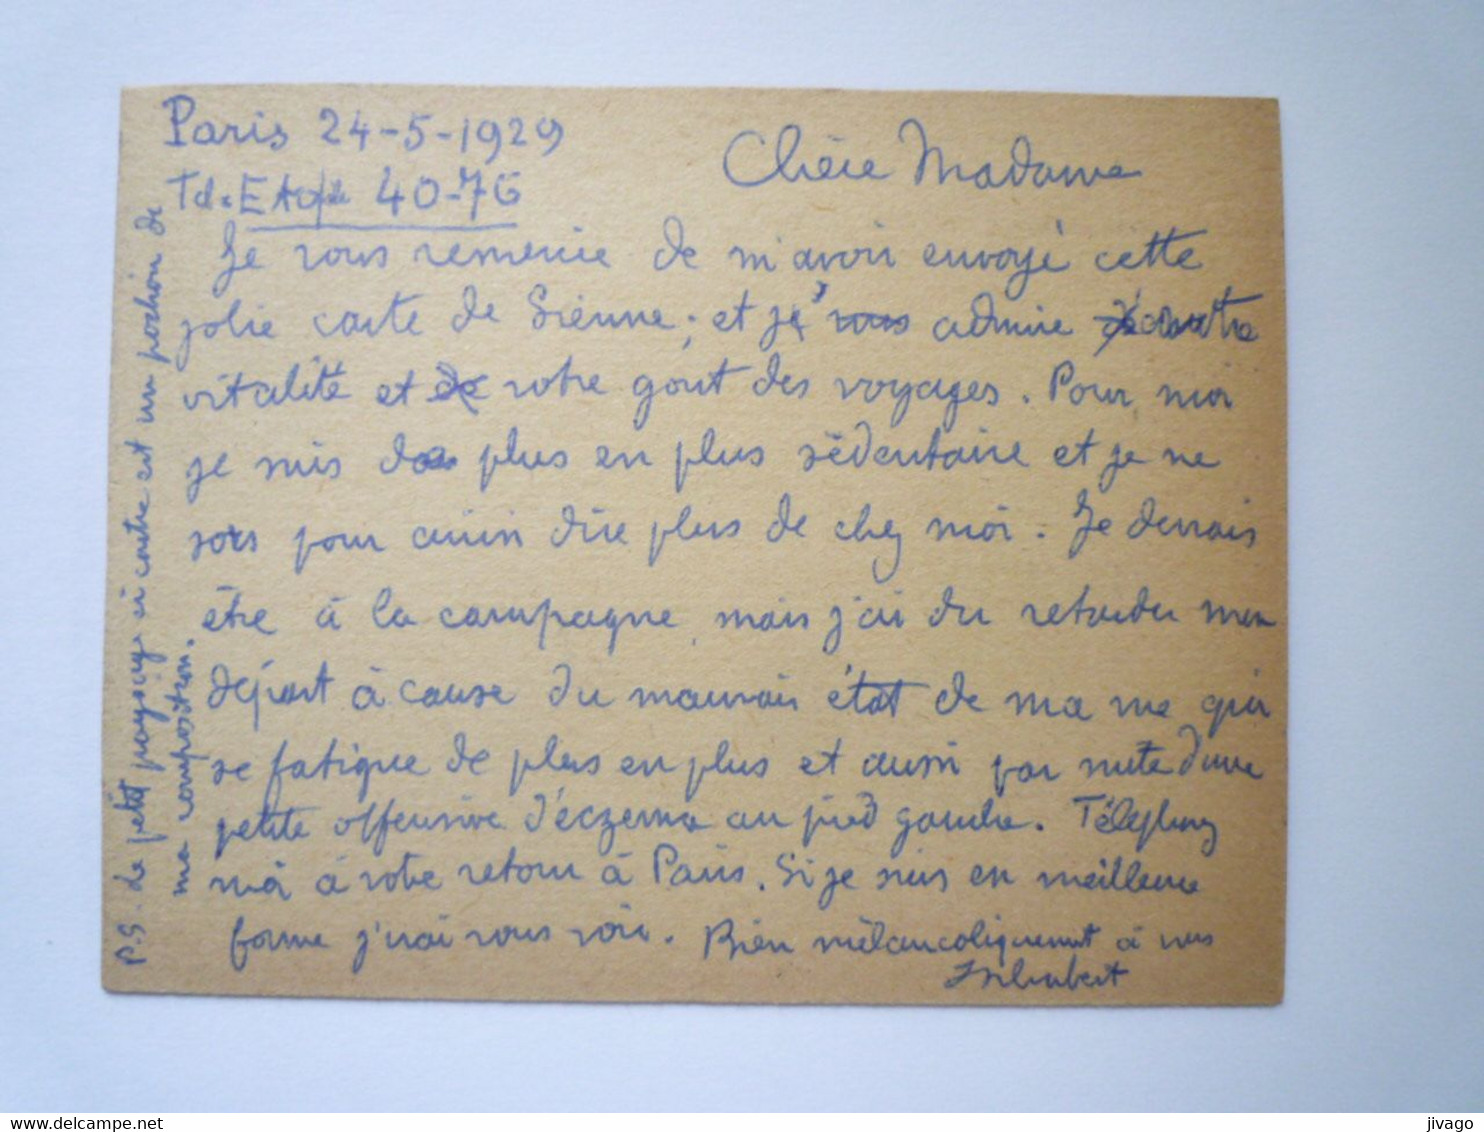 Paris 24-5-1929
Tel. Etoile 40-76
Chère Madame
Je vous remercie de m'avoir envoyé cette
jolie carte de Sienne ; et j' vous admire votre
vitalité et de votre goût des voyages. Pour moi
je suis de plus en plus sédentaire et je ne
sors pour ainsi dire plus de chez moi. Je devrais
être à la campagne, mais j'ai du retarder mon
départ à cause du mauvais état de ma vue qui
se fatigue de plus en plus et aussi par suite d'une
petite offensive d'éczema au pied gauche. Téléphonez
moi à votre retour à Paris. Si je suis en meilleure
forme j'irai vous voir. Bien mélancoliquement à vous
P.S. Le petit paysage ci contre est un pochoir de
ma composition.
jivago